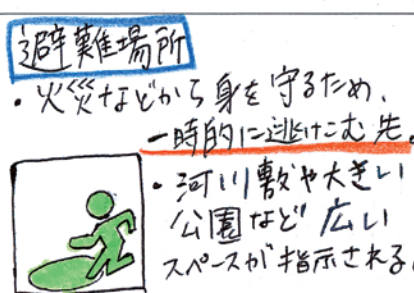 避難場所
・火災などから身を守るため、
一時的に逃げこむ先。
・河川敷や大きい
公園など広い
スペースが指示される。